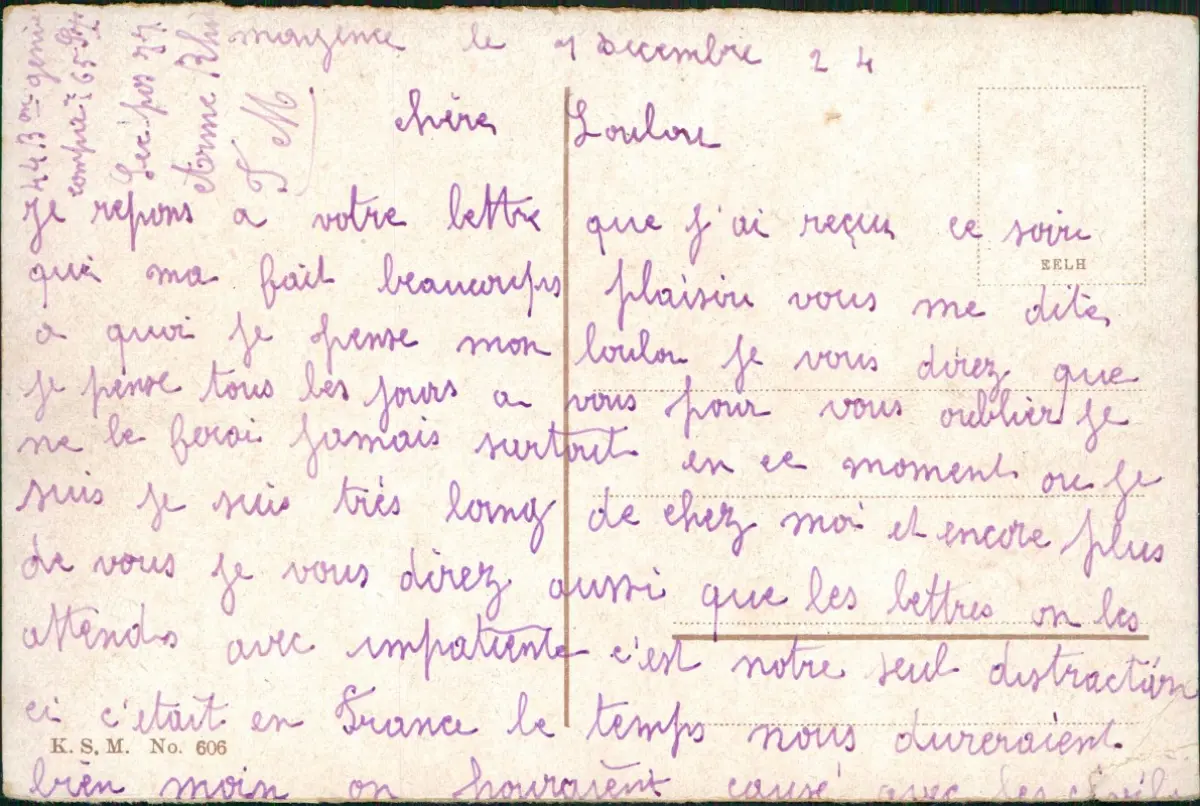 mayence le 7 Decembre 24
443 me genie
compie 65
Sec. pos 77
Armé Rhin
T M
chère Loulou
je repons a votre lettre que j'ai reçue ce soire
qui ma fait beaucoups plaisire vous me dite
a quoi je pense mon loulou je vous direz que
je pense tous les jours a vous pour vous oublier je
ne le ferai jamais surtout en ce moment ou je
suis je suis très loing de chez moi et encore plus
de vous je vous direz aussi que les lettres on les
attends avec impatiente c'est notre seul distraction
ci c'etait en France le temps nous dureraient
bien moin on pouraient causé avec les civils
EELH
K. S. M. No. 606